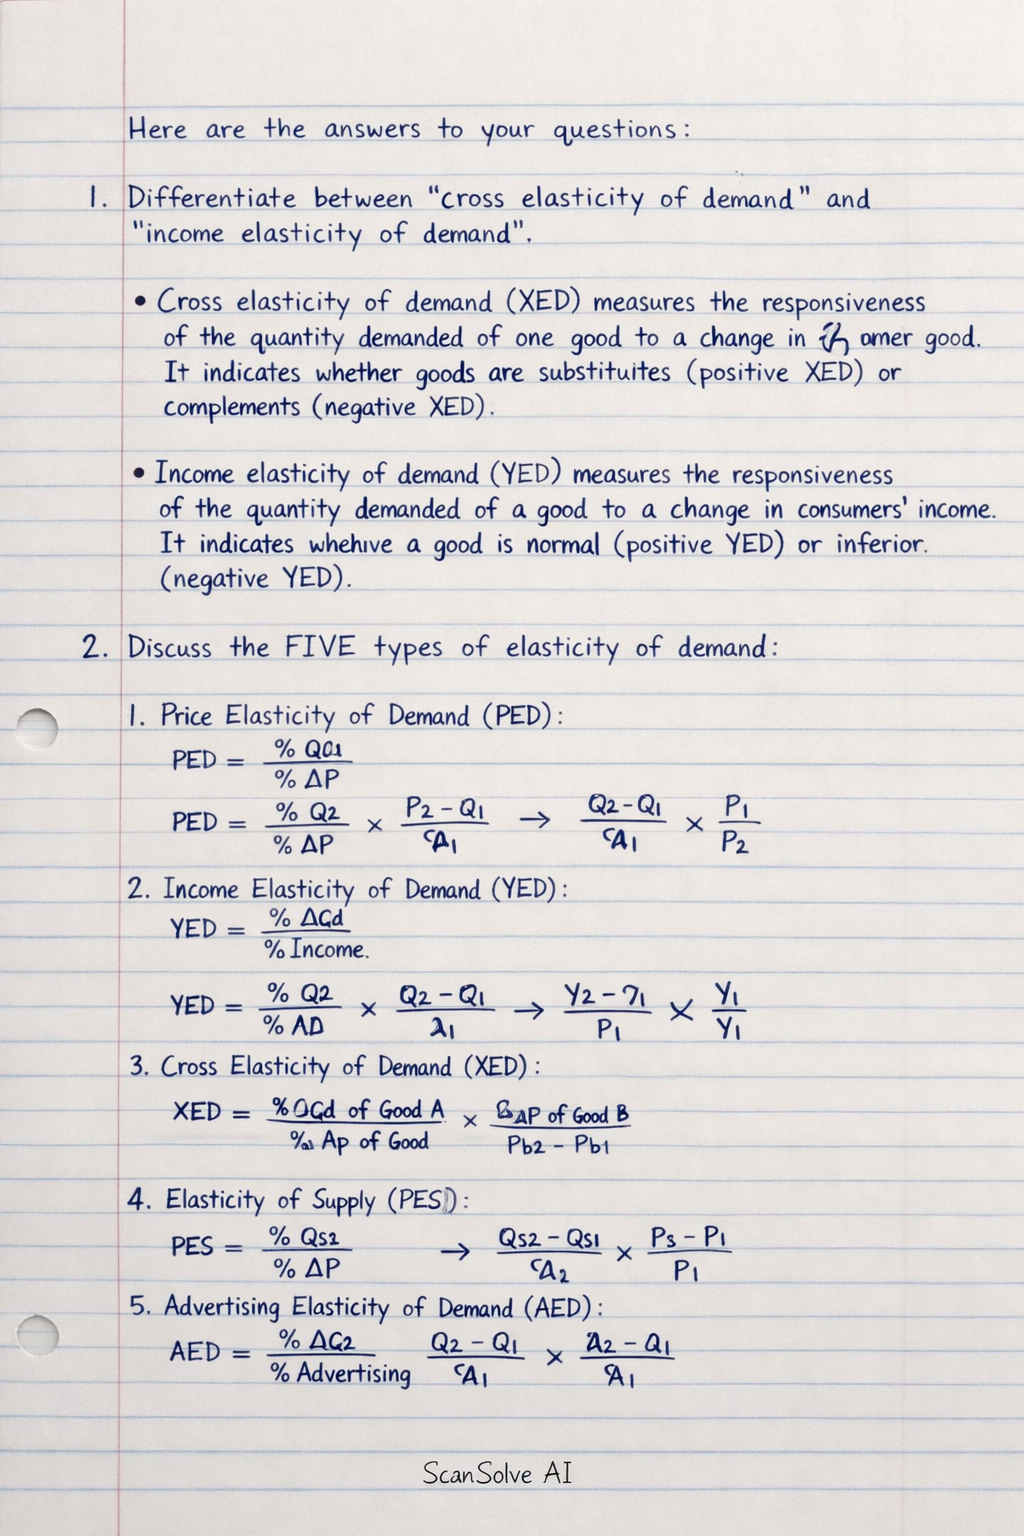 Here are the answers to your questions:
1. Differentiate between "cross elasticity of demand" and
"income elasticity of demand".
• Cross elasticity of demand (XED) measures the responsiveness
of the quantity demanded of one good to a change in omer good.
It indicates whether goods are substituites (positive XED) or
complements (negative XED).
• Income elasticity of demand (YED) measures the responsiveness
of the quantity demanded of a good to a change in consumers' income.
It indicates whehive a good is normal (positive YED) or inferior.
(negative YED).
2. Discuss the FIVE types of elasticity of demand:
1. Price Elasticity of Demand (PED):
PED = % / % ΔP
PED = % Q2 / % ΔP × P2 - Q1 / A1 → Q2 - Q1 / A1 × P1 / P2
2. Income Elasticity of Demand (YED):
YED = % ΔGd / % Income.
YED = % Q2 / % AD × Q2 - Q1 / λ1 → Y2 - 71 / P1 × Y1 / Y1
3. Cross Elasticity of Demand (XED):
XED = % Gd of Good A / % Ap of Good × AP of Good B / Pb2 - Pb1
4. Elasticity of Supply (PES):
PES = % Qs2 / % ΔP → Qs2 - Qs1 / A2 × Ps - P1 / P1
5. Advertising Elasticity of Demand (AED):
AED = % ΔG2 / % Advertising Q2 - Q1 / A1 × A2 - Q1 / A1
ScanSolve AI